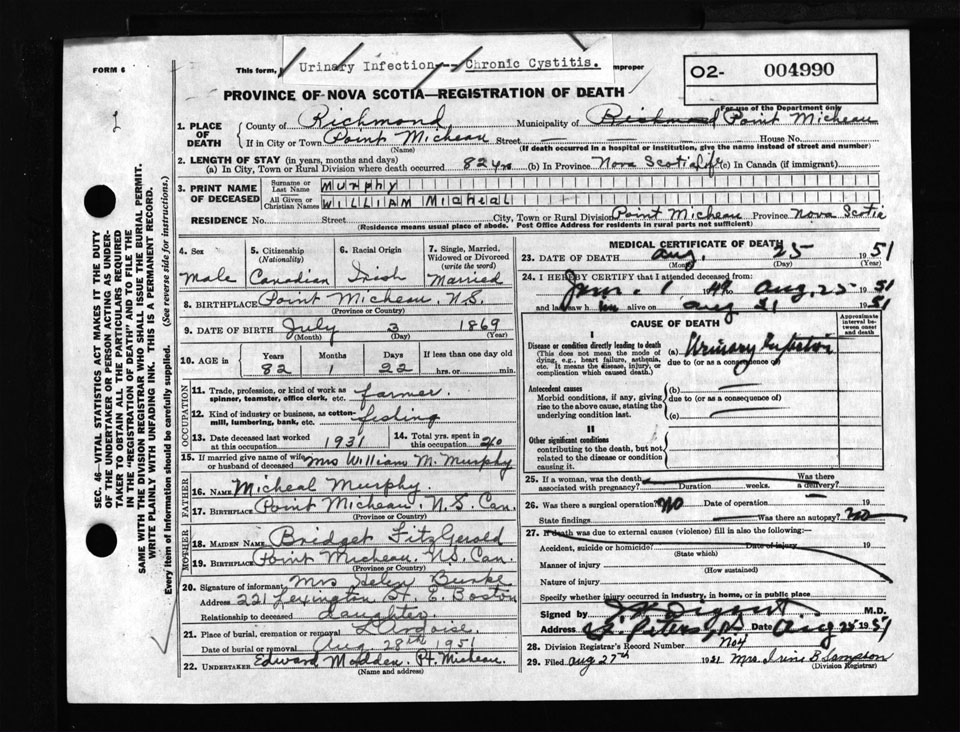 FORM 6
This form, Urinary Infection -- Chronic Cystitis. improper
O2- 004990
PROVINCE OF NOVA SCOTIA—REGISTRATION OF DEATH
For use of the Department only
1. PLACE OF DEATH County of Richmond Municipality of Richmond Point Micheau
If in City or Town Point Micheau Street House No.
(Name) (If death occurred in a hospital or institution, give the name instead of street and number)
2. LENGTH OF STAY (in years, months and days)
(a) In City, Town or Rural Division where death occurred 82 yrs (b) In Province Nova Scotia Life (c) In Canada (if immigrant)
3. PRINT NAME OF DECEASED
Surname or Last Name MURPHY
All Given or Christian Names WILLIAM Micheal
RESIDENCE No. Street City, Town or Rural Division Point Micheau Province Nova Scotia
(Residence means usual place of abode. Post Office Address for residents in rural parts not sufficient)
SEC. 46—VITAL STATISTICS ACT MAKES IT THE DUTY
OF THE UNDERTAKER OR PERSON ACTING AS UNDER-
TAKER TO OBTAIN ALL THE PARTICULARS REQUIRED
IN THE "REGISTRATION OF DEATH" AND TO FILE THE
SAME WITH THE DIVISION REGISTRAR WHO SHALL ISSUE THE BURIAL PERMIT.
WRITE PLAINLY WITH UNFADING INK. THIS IS A PERMANENT RECORD.
Every item of Information should be carefully supplied. (See reverse side for instructions.)
4. Sex
Male
5. Citizenship (Nationality)
Canadian
6. Racial Origin
Irish
7. Single, Married, Widowed or Divorced (write the word)
Married
8. BIRTHPLACE Point Micheau N.S.
(Province or Country)
9. DATE OF BIRTH July 3 1869
(Month) (Day) (Year)
10. AGE in Years Months Days If less than one day old
82 1 22 hrs. or min.
OCCUPATION
11. Trade, profession, or kind of work as spinner, teamster, office clerk, etc. farmer
12. Kind of industry or business, as cotton-mill, lumbering, bank, etc. fishing
13. Date deceased last worked at this occupation 1931
14. Total yrs. spent in this occupation 20
15. If married give name of wife or husband of deceased Mrs William M. Murphy
FATHER
16. NAME Micheal Murphy.
17. BIRTHPLACE Point Micheau, N.S. Can.
(Province or Country)
MOTHER
18. MAIDEN NAME Bridget FitzGerald
19. BIRTHPLACE Point Micheau. N.S. Can.
(Province or Country)
20. Signature of informant Mrs Helen Burke
Address 221 Lexington St. E. Boston
Relationship to deceased daughter.
21. Place of burial, cremation or removal L'Ardoise.
Date of burial or removal Aug. 28th 1951
22. UNDERTAKER Edward Madden. Pt. Micheau.
(Name and address)
MEDICAL CERTIFICATE OF DEATH
23. DATE OF DEATH Aug. 25 1951
(Month) (Day) (Year)
24. I HEREBY CERTIFY that I attended deceased from:
Jan. 1 Aug. 25 1951
and last saw him alive on Aug 21 1951
CAUSE OF DEATH
Approximate interval between onset and death
I
Disease or condition directly leading to death
(This does not mean the mode of dying, e.g., heart failure, asthenia, etc. It means the disease, injury, or complication which caused death.)
(a) Urinary Infection
due to (or as a consequence of)
Antecedent causes
Morbid conditions, if any, giving rise to the above cause, stating the underlying condition last.
(b)
due to (or as a consequence of)
(c)
II
Other significant conditions
contributing to the death, but not related to the disease or condition causing it.
25. If a woman, was the death associated with pregnancy? Duration weeks. Was there a delivery?
26. Was there a surgical operation? No Date of operation 19
State findings Was there an autopsy? No
27. If death was due to external causes (violence) fill in also the following:
Accident, suicide or homicide? Date of injury 19
(State which)
Manner of injury
(How sustained)
Nature of injury
Specify whether injury occurred in industry, in home, or in public place
Signed by M.D.
Address St. Peters, N.S Date Aug 25 1951
28. Division Registrar's Record Number No 4
29. Filed Aug 27th 1951 Mrs. Irene B Sampson
(Division Registrar)